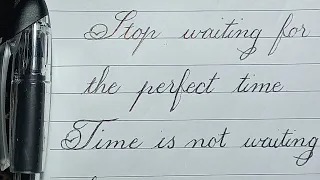 Stop waiting for
the perfect time
Time is not waiting